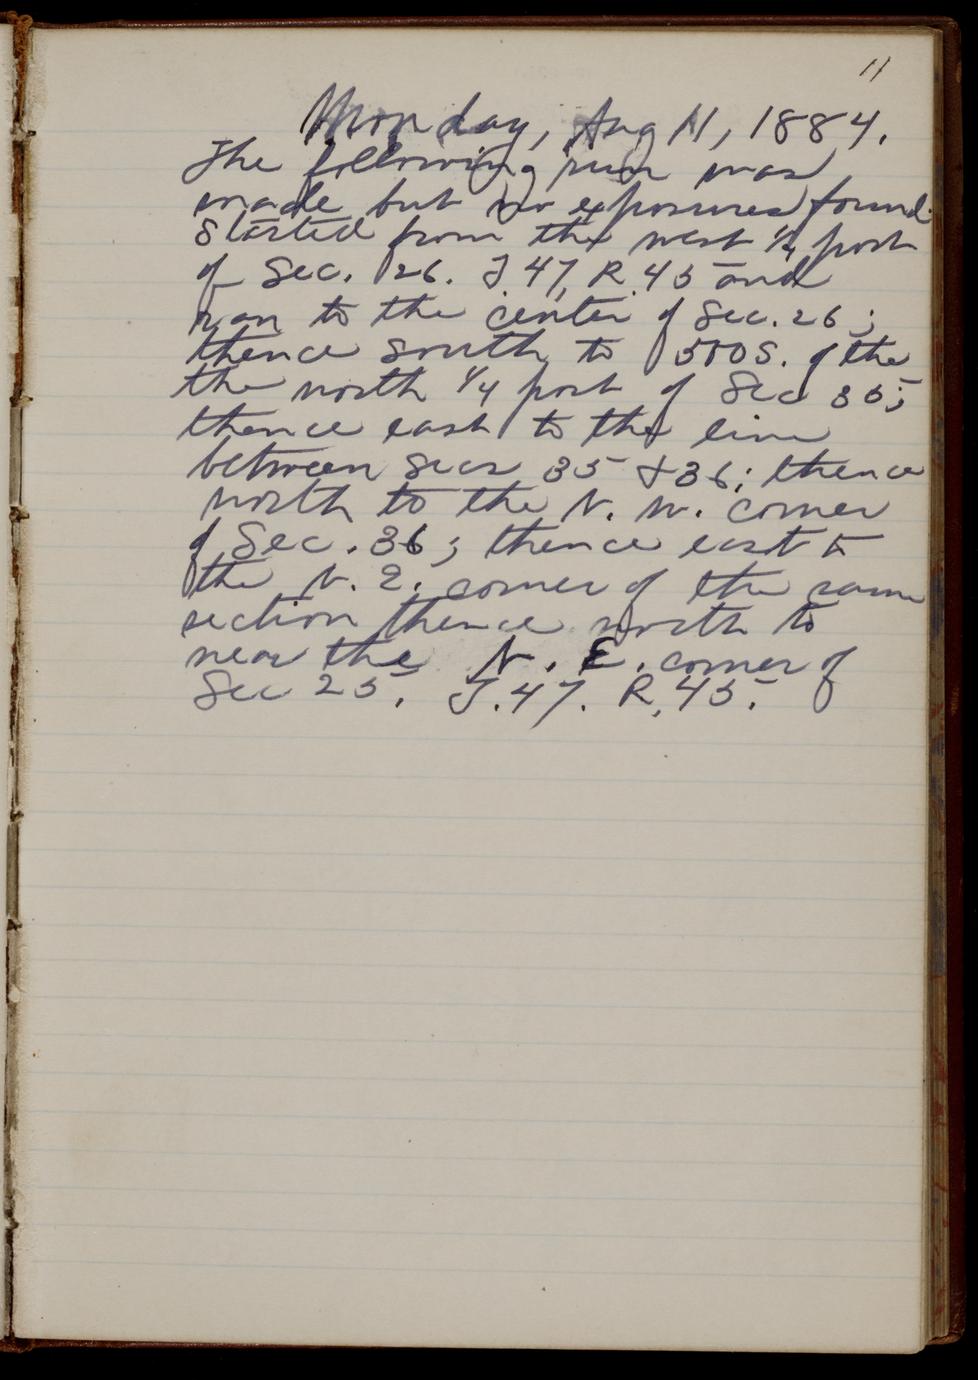 11
Monday, Aug 11, 1884.
The following run was
made but no exposures found.
Started from the west 1/4 post
of Sec. 26. T. 47, R. 45 and
ran to the center of Sec. 26;
thence south to 500 S. of the
the north 1/4 post of Sec 35;
thence east to the line
between Secs 35 & 36; thence
north to the N. W. corner
of Sec. 36; thence east to
the N. E. corner of the same
section thence north to
near the N. E. corner of
Sec 25. T. 47. R. 45.